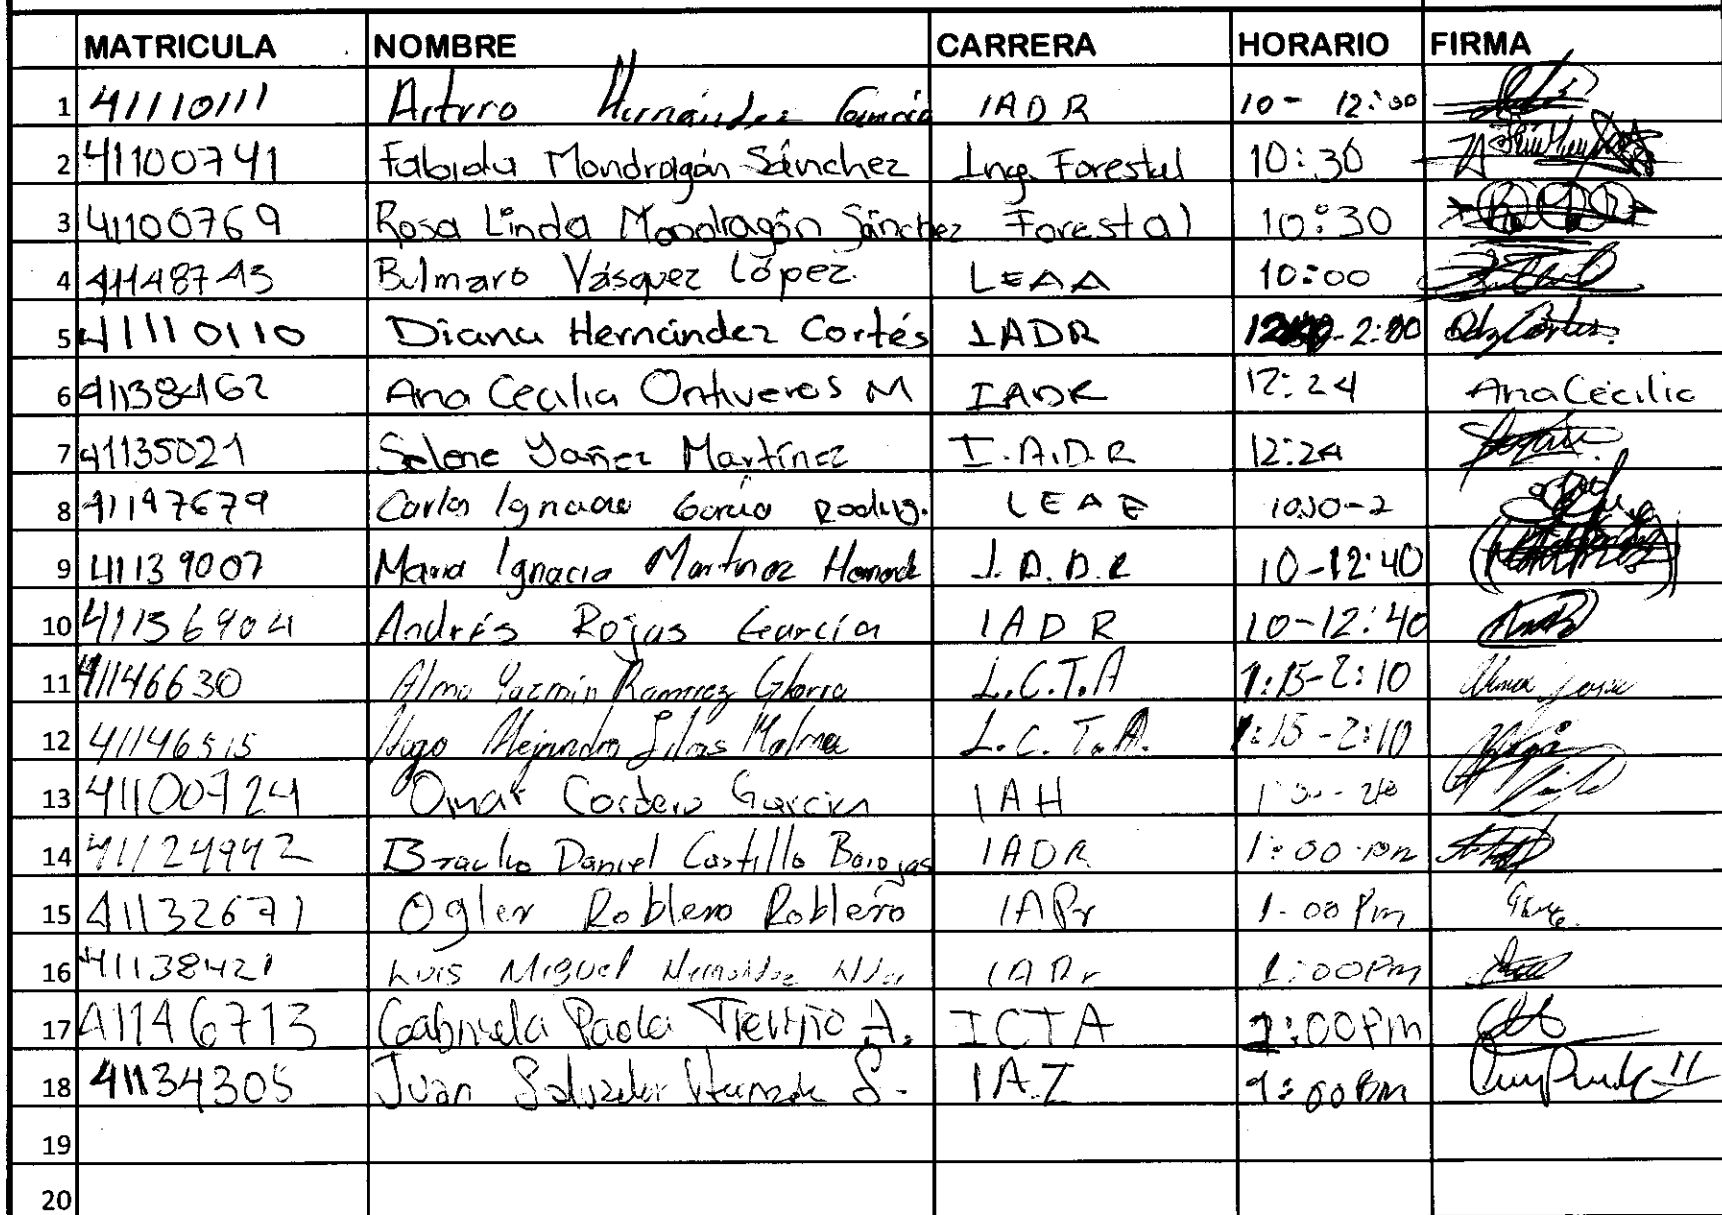 MATRICULA NOMBRE CARRERA HORARIO FIRMA
1 41110111 Arturo Hernández García IADR 10 - 12:00
2 41100741 Fabiola Mondragón Sánchez Ing. Forestal 10:30
3 41100769 Rosa Linda Mondragón Sánchez Forestal 10:30
4 41148743 Bulmaro Vásquez López. LEAA 10:00
5 41110110 Diana Hernández Cortés IADR -2:00
6 41138462 Ana Cecilia Ontiveros M IADR 12:24 Ana Cecilia
7 41135021 Selene Yañez Martínez I.A.D.R 12:24
8 41147679 Carlos Ignacio García Rodrig. LEAE 10:30-2
9 41139007 Maria Ignacia Martinez 10-12:40
10 41136904 Andrés Rojas García IADR 10-12:40
11 41146630 Alma Yazmin Ramirez Gloria L.C.T.A 1:15-2:10
12 41146515 Hugo Alejandro L.C.T.A. 1:15-2:10
13 41100724 Omar Cordero Garcia IAH
14 41124942 Braulio Daniel Castillo Barojas IADR 1:00 pm
15 41132671 Ogler Roblero Roblero IAPr 1:00 Pm
16 41138421 Luis Miguel IAPr 1:00Pm
17 41146713 Gabriela Paola Treviño A. ICTA 1:00Pm
18 41134305 Juan Salvador S. IAZ 1:00 Pm
19
20